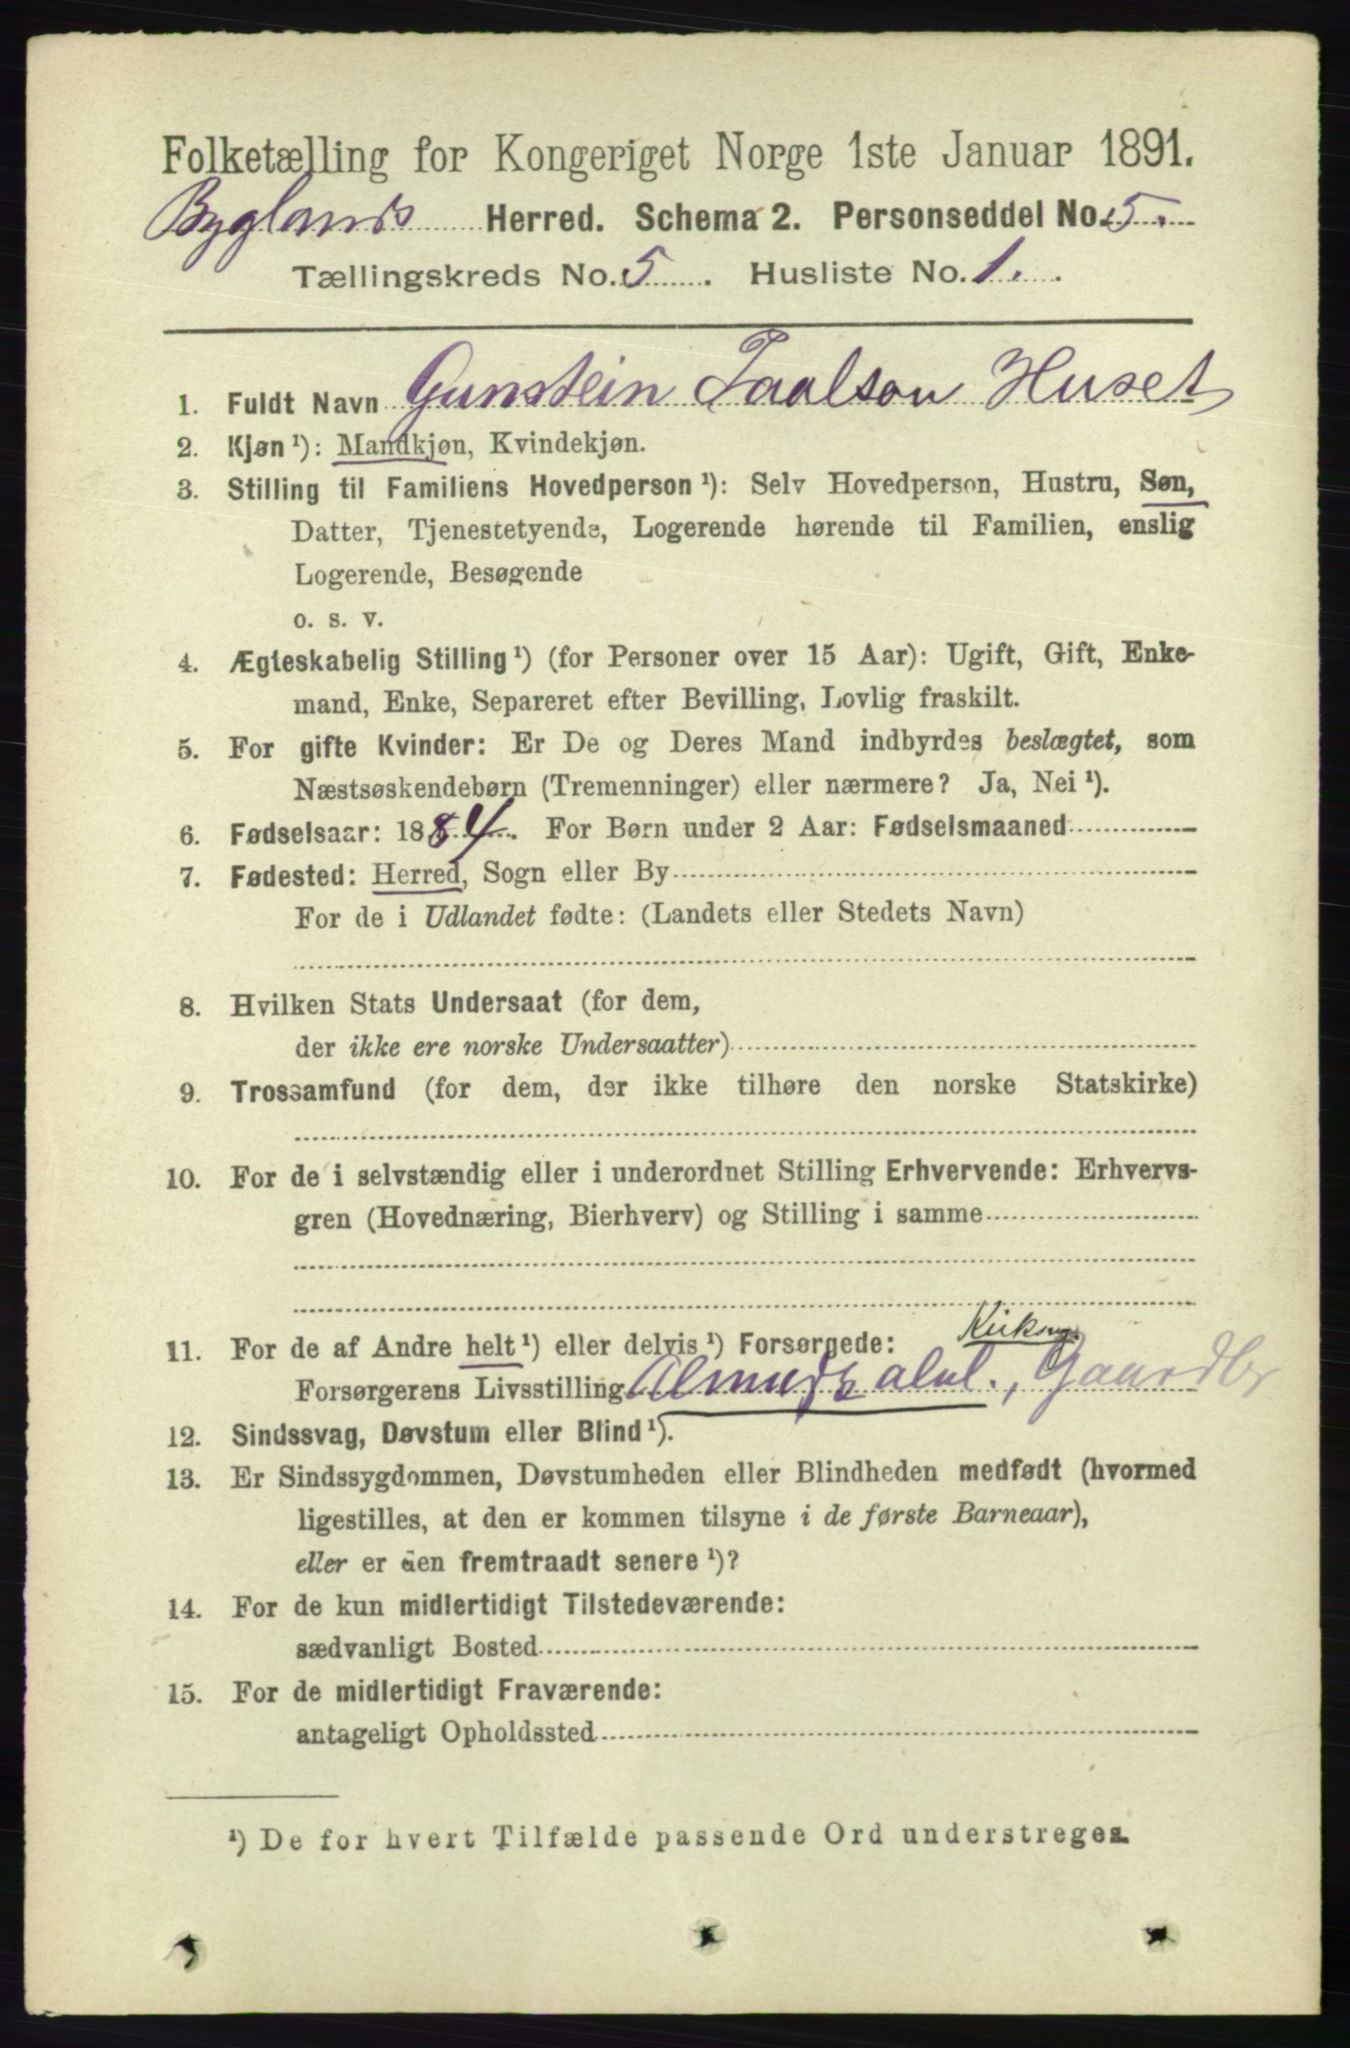 Folketælling for Kongeriget Norge 1ste Januar 1891.
Byglands Herred. Schema 2. Personseddel No. 5.
Tællingskreds No. 5. Husliste No. 1.
1. Fuldt Navn Gunstein Taalson Huset
2. Kjøn ¹): Mandkjøn, Kvindekjøn.
3. Stilling til Familiens Hovedperson ¹): Selv Hovedperson, Hustru, Søn,
Datter, Tjenestetyende, Logerende hørende til Familien, enslig
Logerende, Besøgende
o. s. v.
4. Ægteskabelig Stilling ¹) (for Personer over 15 Aar): Ugift, Gift, Enke-
mand, Enke, Separeret efter Bevilling, Lovlig fraskilt.
5. For gifte Kvinder: Er De og Deres Mand indbyrdes beslægtet, som
Næstsøskendebørn (Tremenninger) eller nærmere? Ja, Nei ¹).
6. Fødselsaar: 1884. For Børn under 2 Aar: Fødselsmaaned
7. Fødested: Herred, Sogn eller By
For de i Udlandet fødte: (Landets eller Stedets Navn)
8. Hvilken Stats Undersaat (for dem,
der ikke ere norske Undersaatter)
9. Trossamfund (for dem, der ikke tilhøre den norske Statskirke)
10. For de i selvstændig eller i underordnet Stilling Erhvervende: Erhvervs-
gren (Hovednæring, Bierhverv) og Stilling i samme
11. For de af Andre helt ¹) eller delvis ¹) Forsørgede:
Forsørgerens Livsstilling , Gaardbr
12. Sindssvag, Døvstum eller Blind ¹).
13. Er Sindssygdommen, Døvstumheden eller Blindheden medfødt (hvormed
ligestilles, at den er kommen tilsyne i de første Barneaar),
eller er den fremtraadt senere ¹)?
14. For de kun midlertidigt Tilstedeværende:
sædvanligt Bosted
15. For de midlertidigt Fraværende:
antageligt Opholdssted
¹) De for hvert Tilfælde passende Ord understreges.